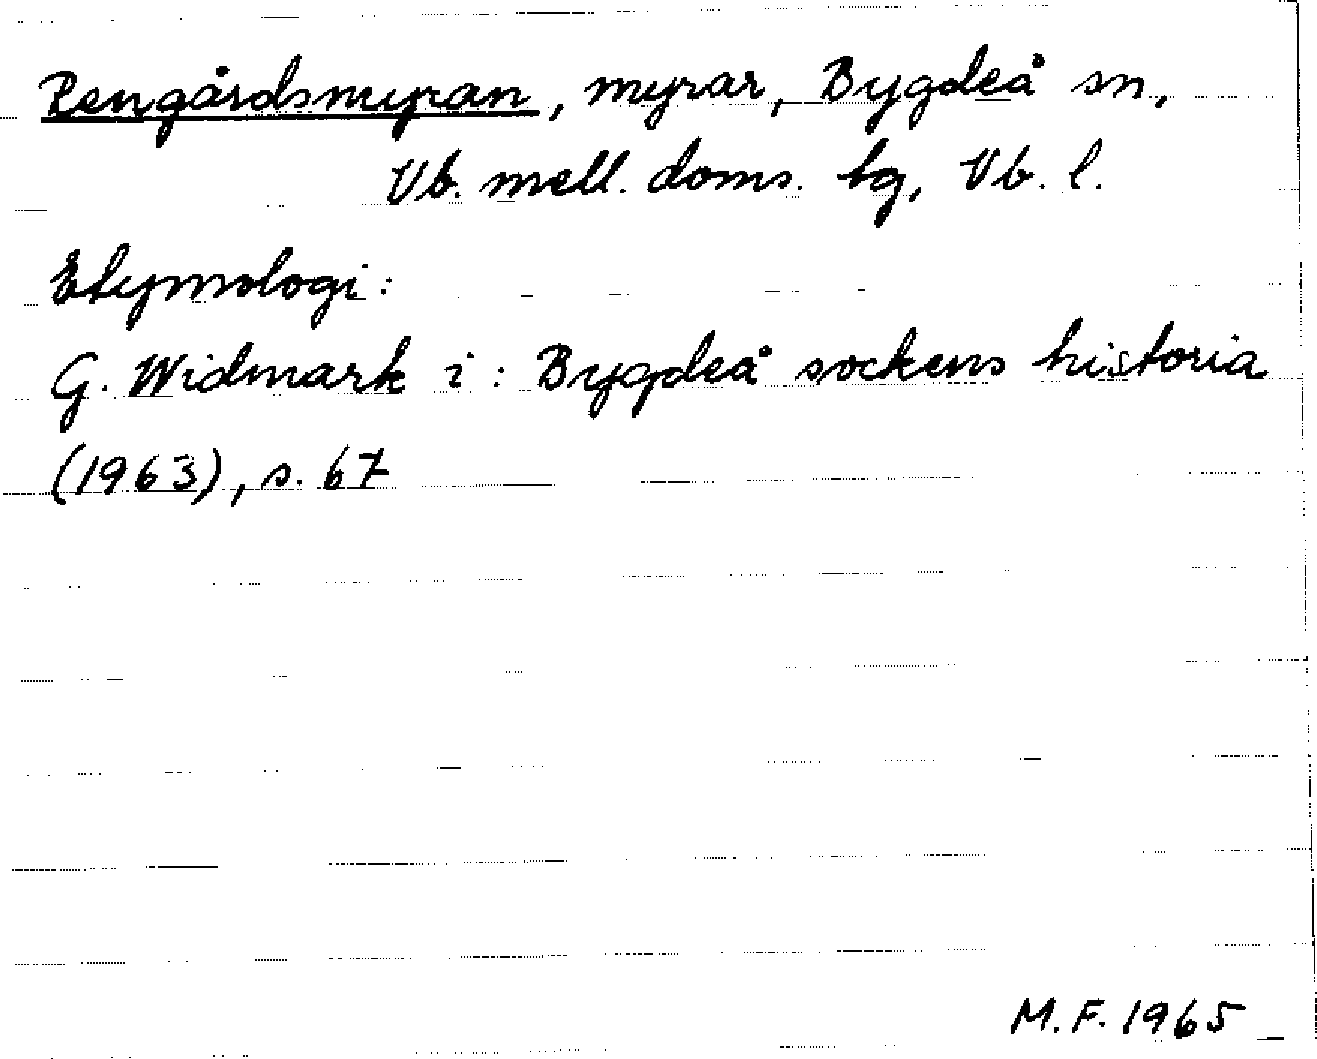 Rengårdsmyran, myrar, Bygdeå sn,
Vb. mell. doms. tg, Vb. l.
Etymologi:
G. Widmark i: Bygdeå sockens historia
(1963), s. 67
M.F. 1965